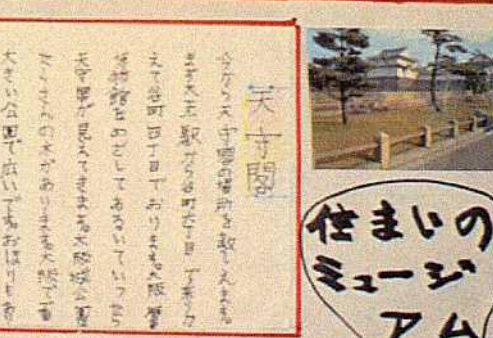 天守閣
今から天守閣の場所を教えます。
まず天王 駅から谷町六丁目 で
えて谷町四丁目でおります。大阪歴
博物館をめざしてあるいていったら
天守閣が見えてきます。大阪城公園
たくさんの木があります。大阪で一番
大きい公園で広いです。おほりも
住まいの
ミュージ
アム